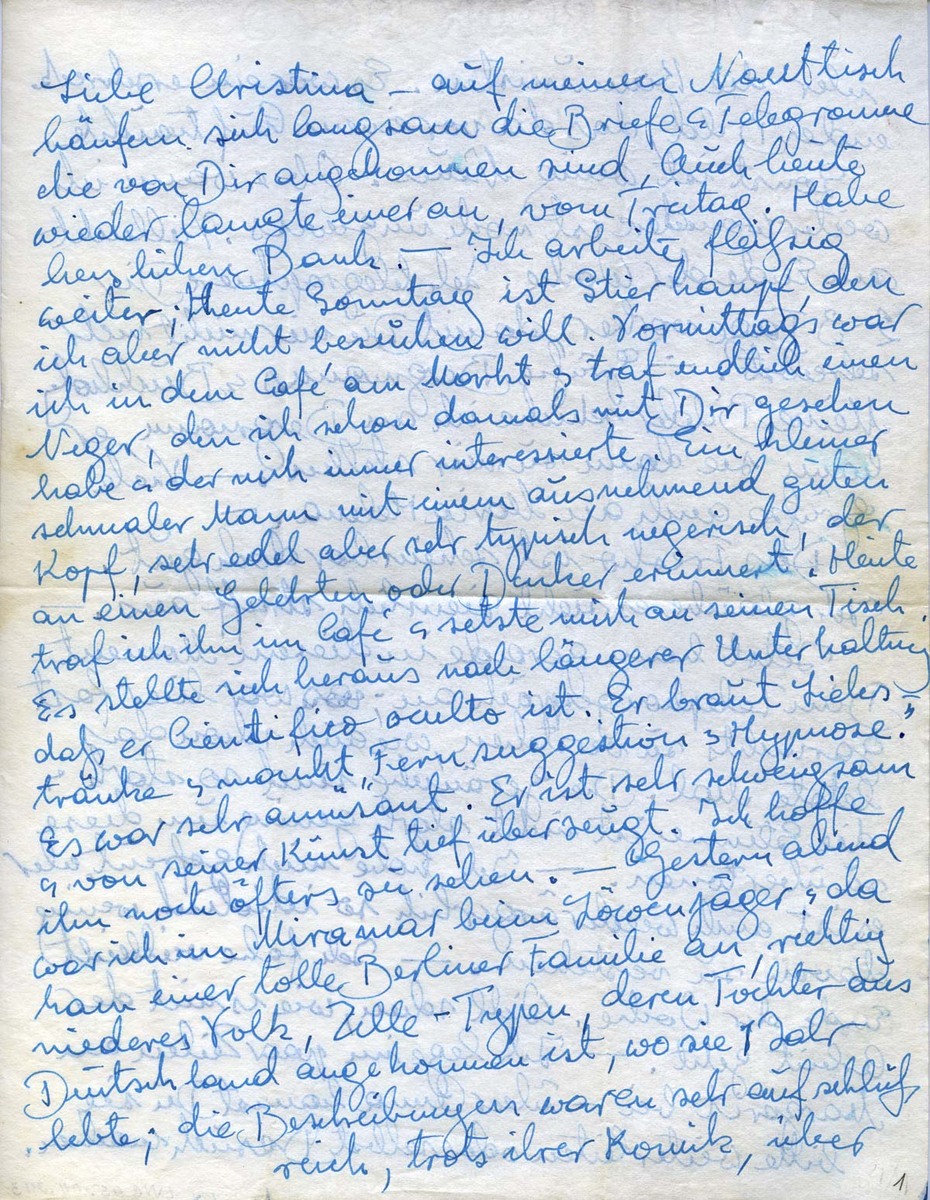 Liebe Christina – auf meinem Nachttisch
häufen sich langsam die Briefe & Telegramme
die von Dir angekommen sind, Auch heute
wieder langte einer an, vom Freitag. Habe
herzlichen Dank. — Ich arbeite fleißig
weiter; Heute Sonntag ist Stierkampf, den
ich aber nicht besuchen will. Vormittags war
ich in dem Café am Markt & traf endlich einen
Neger, den ich schon damals mit Dir gesehen
habe & der mich immer interessierte. Ein kleiner
schmaler Mann mit einem ausnehmend guten
Kopf, sehr edel aber sehr typisch negerisch, der
an einen Gelehrten oder Denker erinnert. Heute
traf ich ihn im Café & setzte mich an seinen Tisch
Es stellte sich heraus nach längerer Unterhaltung
daß er Cientifico oculto ist. Er braut Liebes-
tränke & macht „Fernsuggestion & Hypnose."
Es war sehr amüsant. Er ist sehr schweigsam
& von seiner Kunst tief überzeugt. Ich hoffe
ihn noch öfters zu sehen. — Gestern abend
war ich im Miramar beim Löwenjäger & da
kam einer tolle Berliner Familie an, richtig
niederes Volk, Zille-Typen, deren Tochter aus
Deutschland angekommen ist, wo sie 1 Jahr
lebte; die Beschreibungen waren sehr aufschluß
reich, trotz ihrer Komik, über
1